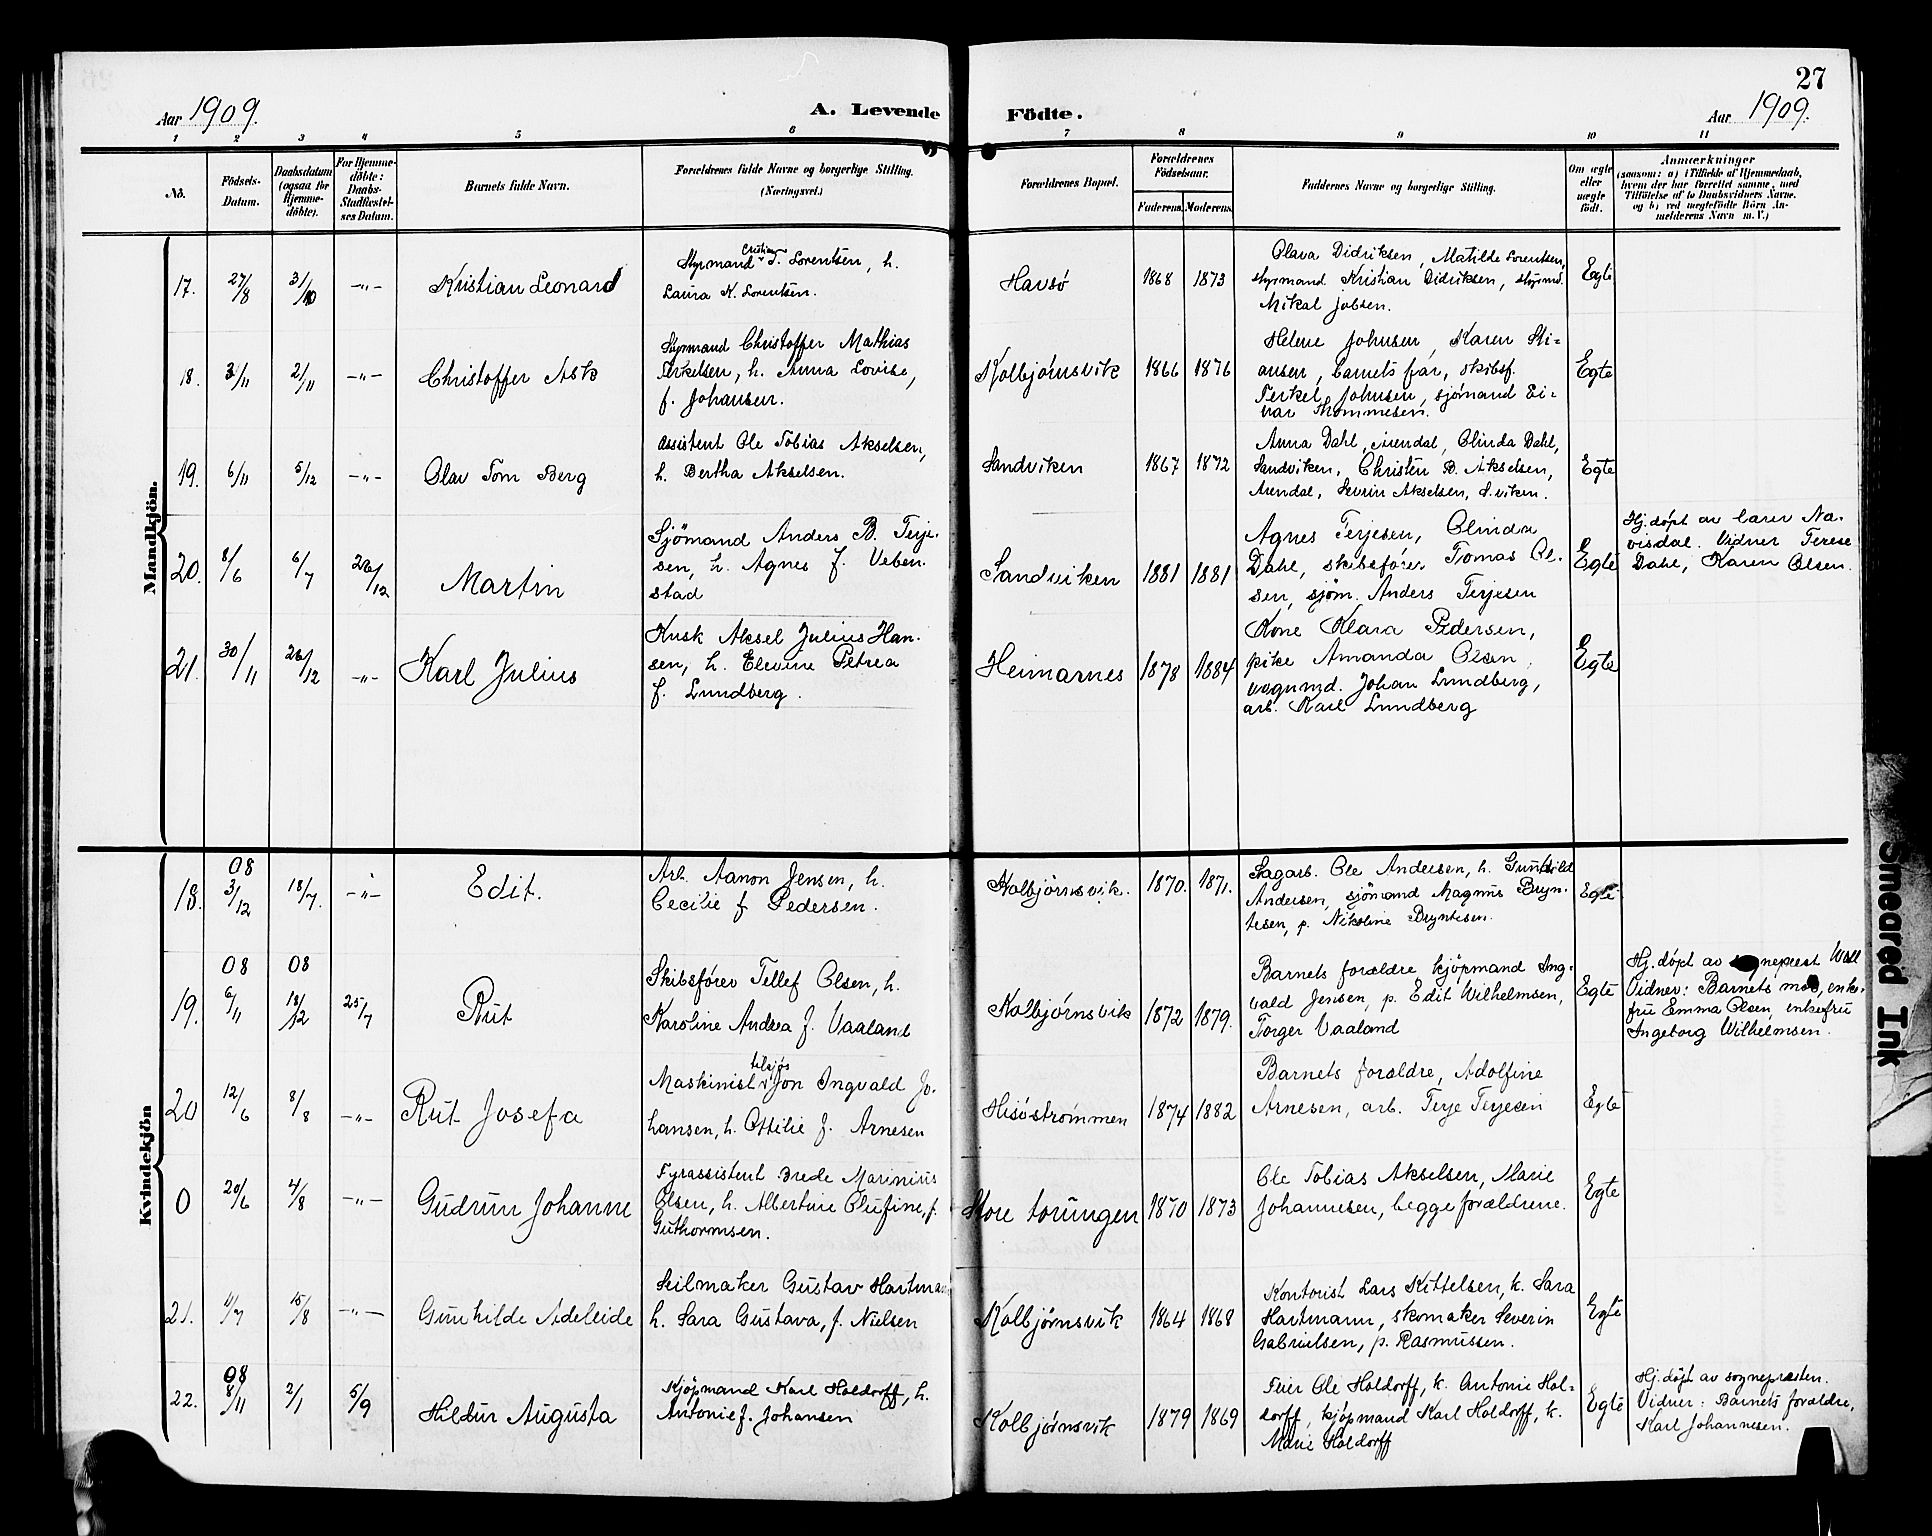 27
Aar 1909.
A. Levende
Födte.
Aar 1909.
1 2 3 4 5 6 7 8 9 10 11
No.
Födsels-
Datum.
Daabsdatum
(ogsaa for
Hjemme-
döbte).
For Hjemme-
döbte:
Daabs-
Stadfæstel-
ses Datum.
Barnets fulde Navn.
Forældrenes fulde Navne og borgerlige Stilling.
(Næringsvei.)
Forældrenes Bopæl.
Forældrenes
Födselsaar.
Faderens. Moderens.
Faddernes Navne og borgerlige Stilling.
Om ægte
eller
uægte
födt.
Anmærkninger
(saasom: a) i Tilfælde af Hjemmedaab,
hvem der har forrettet samme, med
Tilföielse af to Daabsvidners Navne.
og b) ved uægtefödte Börn An-
melderens Navn m. V.)
Mandkjön.
17. 27/8 31/10 -„- Kristian Leonard
Cristian
Styrmand T. Lorentsen, h.
Laura K. Lorentsen.
Havsø 1868 1873
Olava Didriksen, Matilde Lorentsen,
styrmand Kristian Didriksen, styrmd.
Mikal Jobsen.
Egte
18. 3/11 2/11 -„- Christoffer Ask
Styrmand Christoffer Mathias
Terkelsen, h. Anna Lovise,
f. Johansen.
Kolbjørnsvik 1866 1876
Helene Johnsen, Karen Sti=
ansen, barnets far, skibsf.
Terkel Johnsen, sjømand Ei=
nar Thommesen.
Egte
19. 6/11 5/12 -„- Olav Tom Berg
Assistent Ole Tobias Akselsen,
h. Bertha Akselsen.
Sandviken 1867 1872
Anna Dahl, Arendal, Olinda Dahl,
Sandviken, Christen B. Akselsen,
Arendal, Severin Akselsen, S.viken.
Egte
20. 8/6 6/7 26/12 Martin
Sjömand Anders B. Terje-
sen, h. Agnes f. Ueben-
stad
Sandviken 1881 1881
Agnes Terjesen, Olinda
Dahl, skibsfører Tomas Ol-
sen, sjøm. Anders Terjesen
Egte
Hj.døpt av lærer Na-
visdal. Vidner Terese
Dahl, Karen Olsen.
21. 30/11 26/12 -„- Karl Julius
Kusk Aksel Julius Han-
sen, h. Elevine Petrea
f. Lundberg.
Heimarnes 1878 1884
Kone Klara Pedersen,
pike Amanda Olsen,
vognmd. Johan Lundberg,
arb. Karl Lundberg
Egte
Kvindekjön
18. 08 3/12 18/7. -„- Edit.
Arb. Aanon Jensen, h.
Cecilie f. Pedersen.
Kolbjørnsvik. 1870. 1871.
Sagarb. Ole Andersen, h. Gunhild
Andersen, sjömand Magnus Bryn-
tesen, p. Nikoline Bryntesen.
Egte
19. 08 6/11 08 18/12 25/7 Rut
Skibsfører Tellef Olsen, h.
Karoline Andrea f. Vaaland
Kolbjørnsvik 1872 1879.
Barnets forældre, kjöpmand Ing-
vald Jensen, p. Edit Wilhelmsen,
Torger Vaaland
Egte
Hj.døpt av sogneprest
Vidner: Barnets mor, enke-
frü Emma Olsen, enkefrü
Ingeborg Wilhelmsen.
20 12/6 8/8 -„- Rut Josefa
tilsjøs
Maskinist Jon Ingvald Jo-
hansen, h. Ottilie f. Arnesen
Hisöstrømmen 1874 1882
Barnets forældre, Adolfine
Arnesen, arb. Terje Terjesen
Egte
0 20/6 4/8 -„- Gudrun Johanne
Fyrassistent Brede Marinius
Olsen, h. Albertine Olufine, f.
Guthormsen.
Store torungen 1870 1873
Ole Tobias Akselsen, Marie
Johannesen, begge forældrene.
Egte
21. 11/7 15/8 -„- Gunhilde Adeleide
Seilmaker Gustav Hartman
h. Sara Gustava, f. Nielsen
Kolbjørnsvik 1864 1868
Kontorist Lars Kittelsen, k. Sara
Hartmann, skomaker Severin
Gabrielsen, p. Rasmussen.
Egte
22. 08 8/11 2/1 5/9 Hildur Augusta
Kjøpmand Karl Holdorff, h.
Antonie f. Johansen
Kolbjørnsvik 1879 1869
Feier Ole Holdorff, k. Antonie Hol=
dorff, kjøpmand Karl Holdorff, k.
Marie Holdorff
Egte
Hj.døpt av sognepræsten.
Vidner: Barnets forældre,
Karl Johannesen.
Smeared Ink